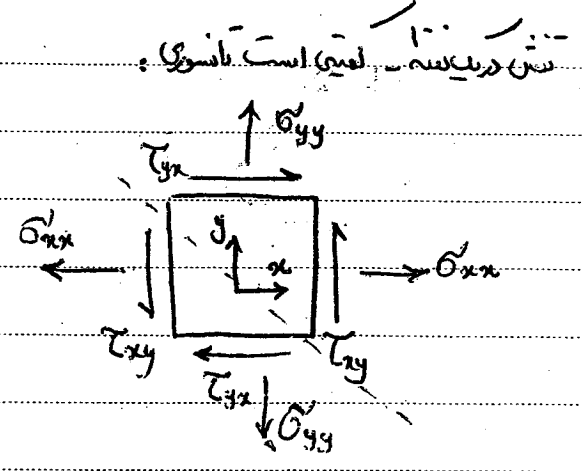 تنش در یک نقطه ـ کمیتی است تانسوری :
σyy
τyx
σxx y x σxx
τxy τxy
τyx
σyy